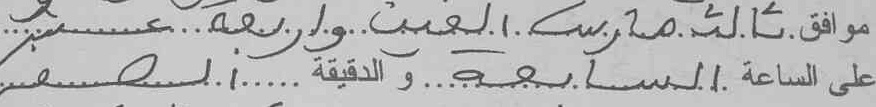 موافق ثالث مارس الفين واربعة عشر
على الساعة السابعة و الدقيقة الصفر